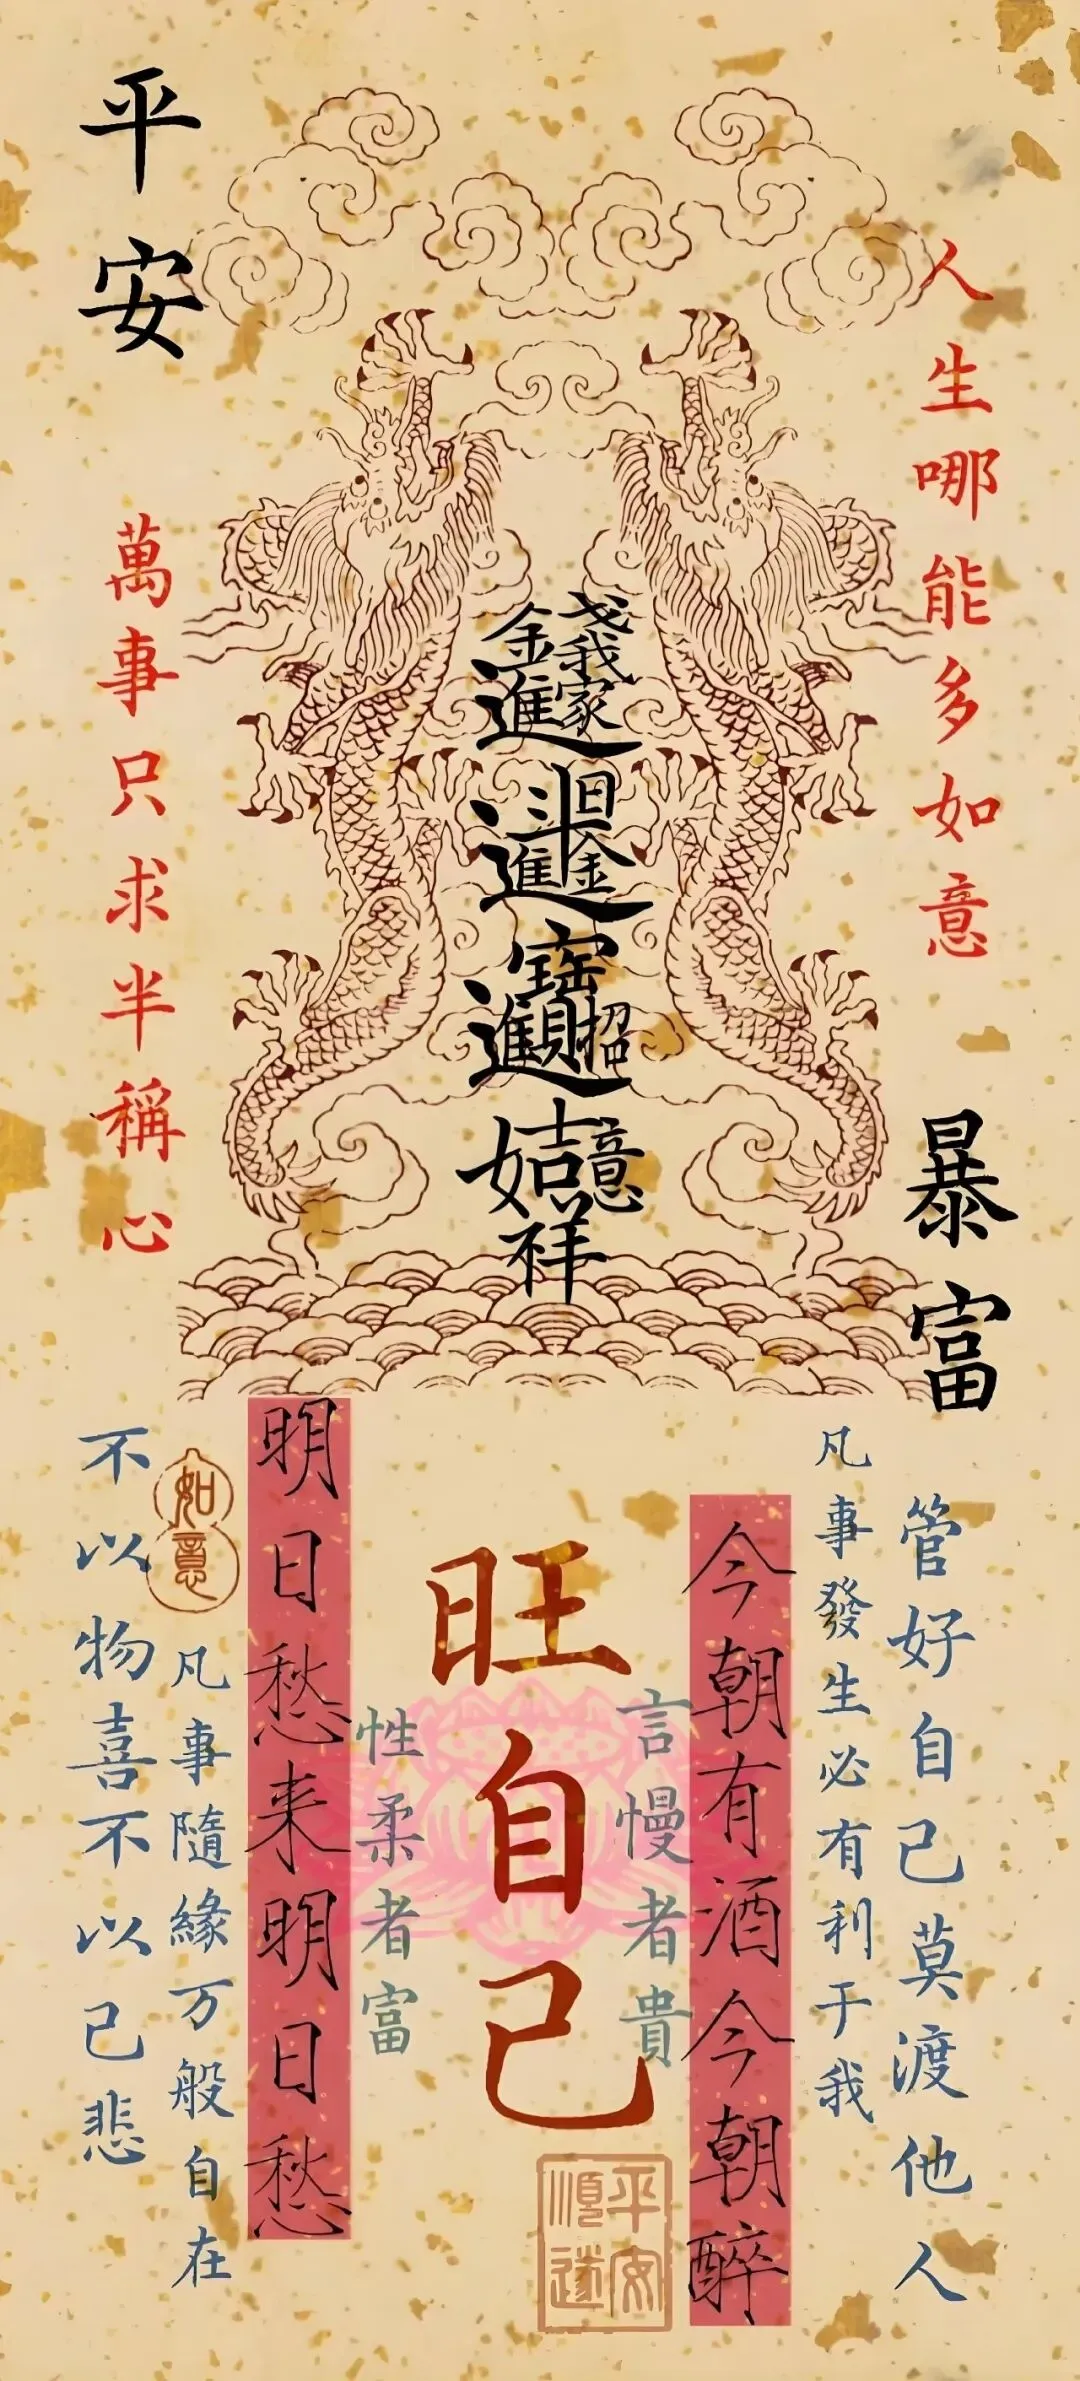 平安
人生哪能多如意
萬事只求半稱心
錢進我家
日進斗金
招財進寶
吉祥如意
暴富
管好自己莫渡他人
凡事發生必有利于我
今朝有酒今朝醉
言慢者貴
旺自己
性柔者富
明日愁来明日愁
如意
凡事隨緣万般自在
不以物喜不以己悲
平安順遂